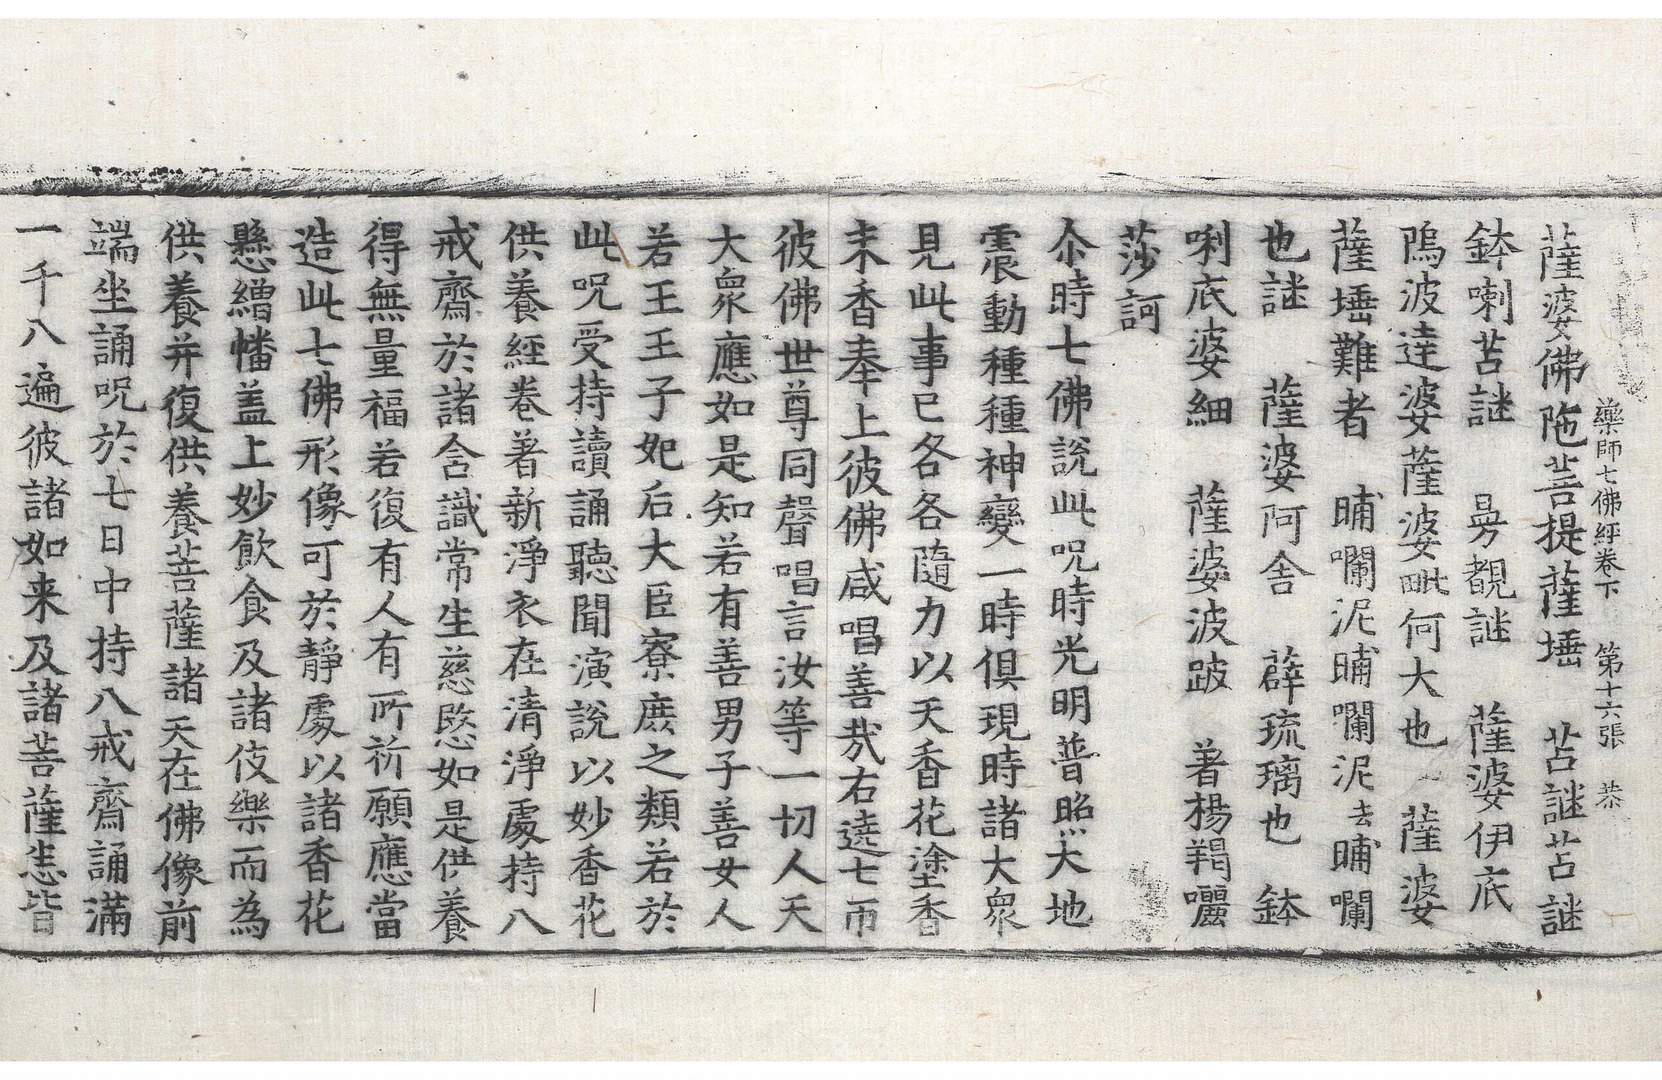 藥師七佛經卷下　第十六張　恭
薩婆佛陁菩提薩埵　苫謎苫謎
鉢喇苫謎　曼覩謎　薩婆伊底
鄔波達婆薩婆毗何大也　薩婆
薩埵難者　晡囒泥晡囒泥去晡囒
也謎　薩婆阿舍　薜琉璃也　鉢
唎底婆細　薩婆波跛　著楊羯囇
莎訶
尒時七佛說此呪時光明普照大地
震動種種神變一時俱現時諸大衆
見此事已各各隨力以天香花塗香
末香奉上彼佛咸唱善哉右遶七帀
彼佛世尊同聲唱言汝等一切人天
大衆應如是知若有善男子善女人
若王王子妃后大臣寮庶之類若於
此呪受持讀誦聽聞演說以妙香花
供養經卷著新淨衣在清淨處持八
戒齋於諸含識常生慈愍如是供養
得無量福若復有人有所祈願應當
造此七佛形像可於靜處以諸香花
懸繒幡盖上妙飲食及諸伎樂而為
供養并復供養菩薩諸天在佛像前
端坐誦呪於七日中持八戒齋誦滿
一千八遍彼諸如来及諸菩薩悉皆